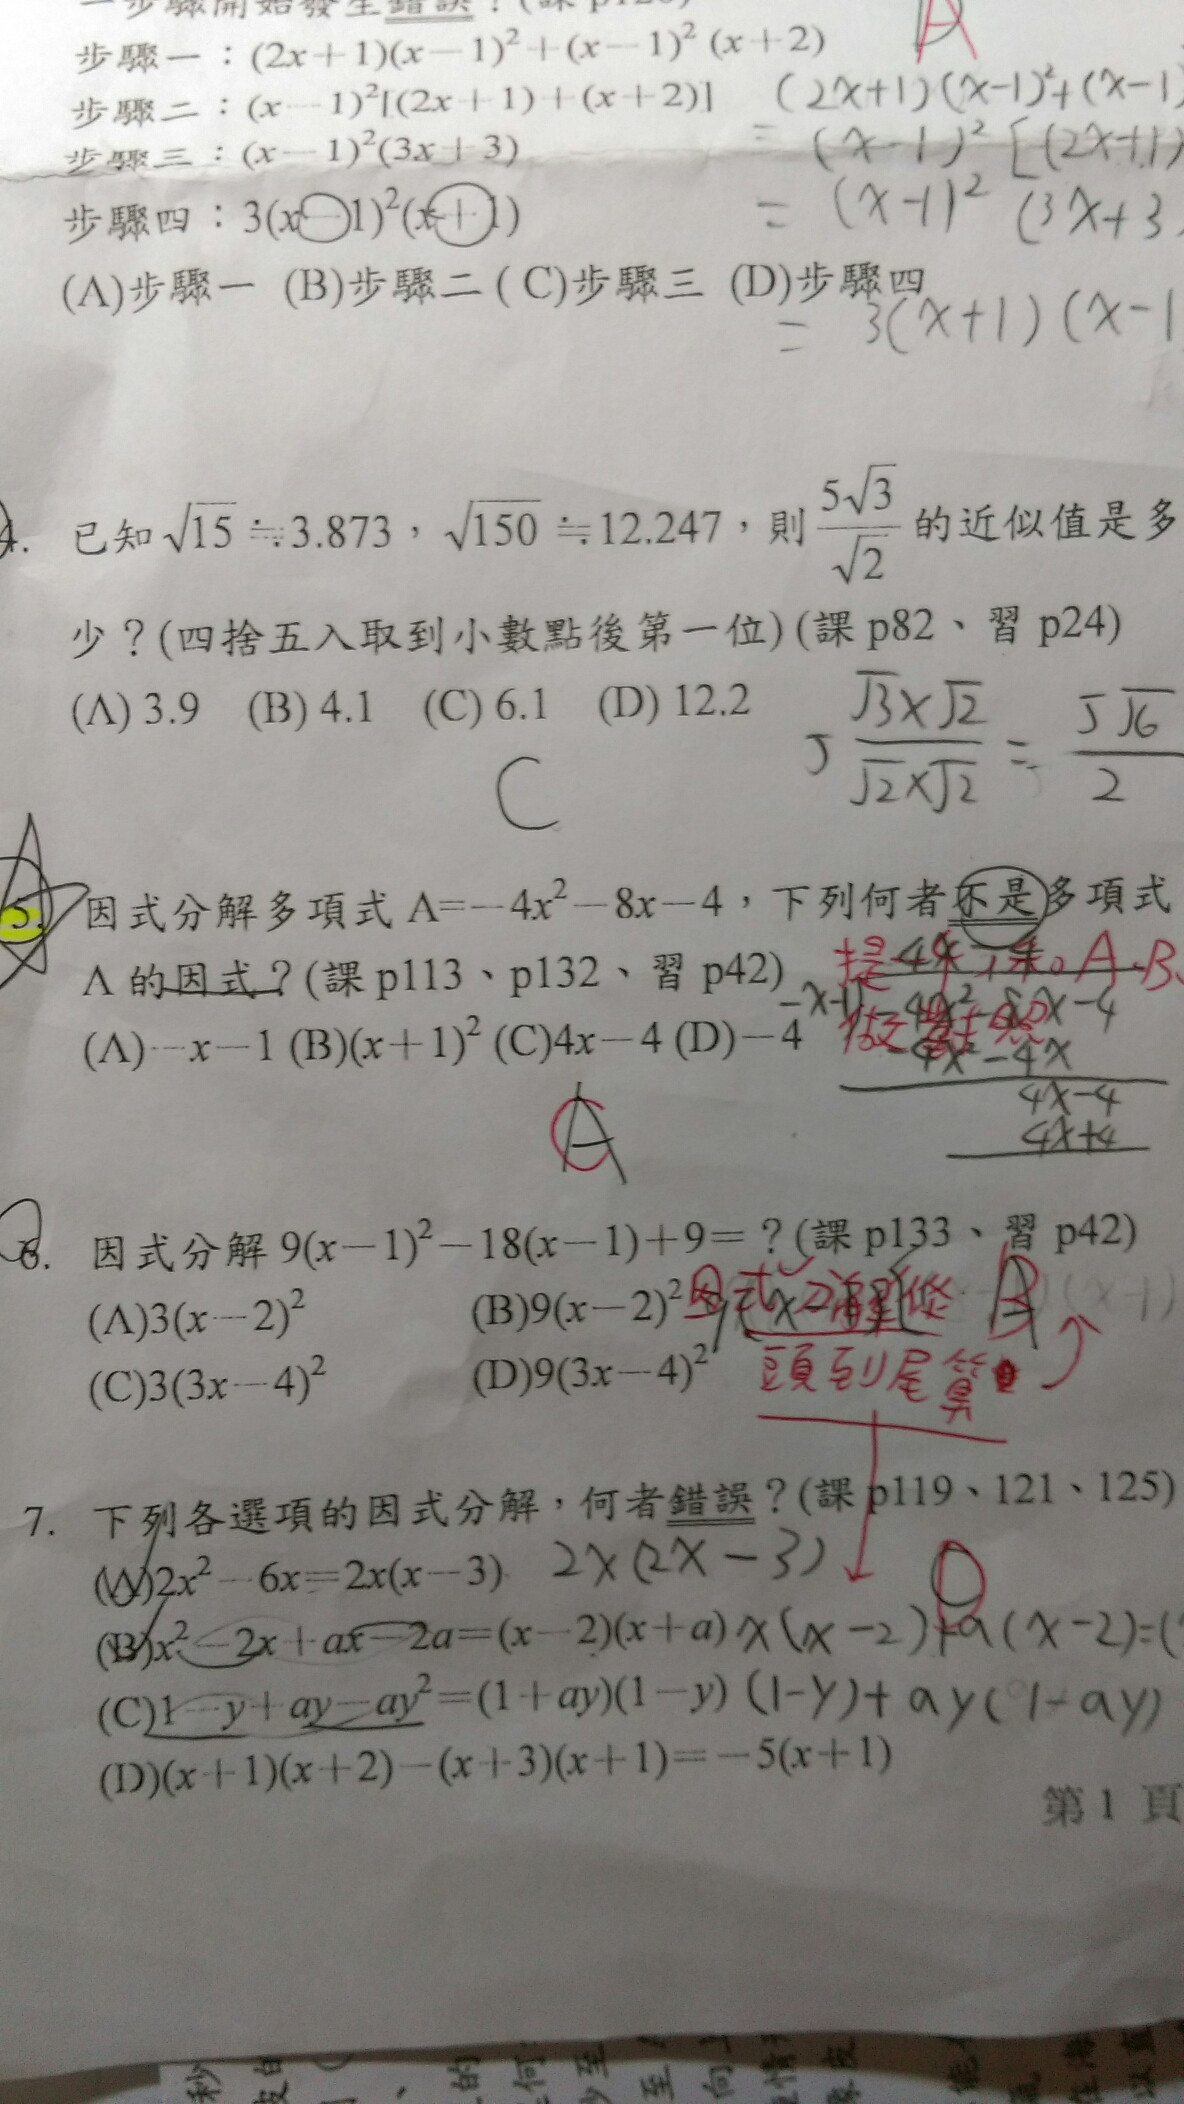 一步驟開始發生錯誤？(課 p126)
步驟一：(2x＋1)(x－1)²＋(x－1)² (x＋2) A
步驟二：(x－1)²[(2x＋1)＋(x＋2)] (2x+1)(x-1)²+(x-1)
步驟三：(x－1)²(3x＋3) = (x-1)² [(2x+1)
步驟四：3(x－1)²(x＋1) = (x-1)² (3x+3)
(A)步驟一 (B)步驟二 (C)步驟三 (D)步驟四
= 3(x+1)(x-1
4. 已知 √15 ≒3.873，√150 ≒12.247，則 5√3/√2 的近似值是多
少？(四捨五入取到小數點後第一位) (課 p82、習 p24)
(A) 3.9 (B) 4.1 (C) 6.1 (D) 12.2 5 √3×√2/√2×√2 = 5√6/2
C
5. 因式分解多項式 A=－4x²－8x－4，下列何者不是多項式
A 的因式？(課 p113、p132、習 p42)
(A)－x－1 (B)(x＋1)² (C)4x－4 (D)－4
-x-1 -4x²-8x-4
-4x²-4x
4x-4
4x+4
A
6. 因式分解 9(x－1)²－18(x－1)＋9=？(課 p133、習 p42)
(A)3(x－2)² (B)9(x－2)² 因式分解從 B
(C)3(3x－4)² (D)9(3x－4)² 頭到尾算
7. 下列各選項的因式分解，何者錯誤？(課 p119、121、125)
(A)2x²－6x=2x(x－3) 2x(2x-3) D
(B)x²－2x＋ax－2a=(x－2)(x＋a) x(x-2)+a(x-2)=(
(C)1－y＋ay－ay²=(1＋ay)(1－y) (1-y)+ay(1-ay)
(D)(x＋1)(x＋2)－(x＋3)(x＋1)=－5(x＋1)
第 1 頁